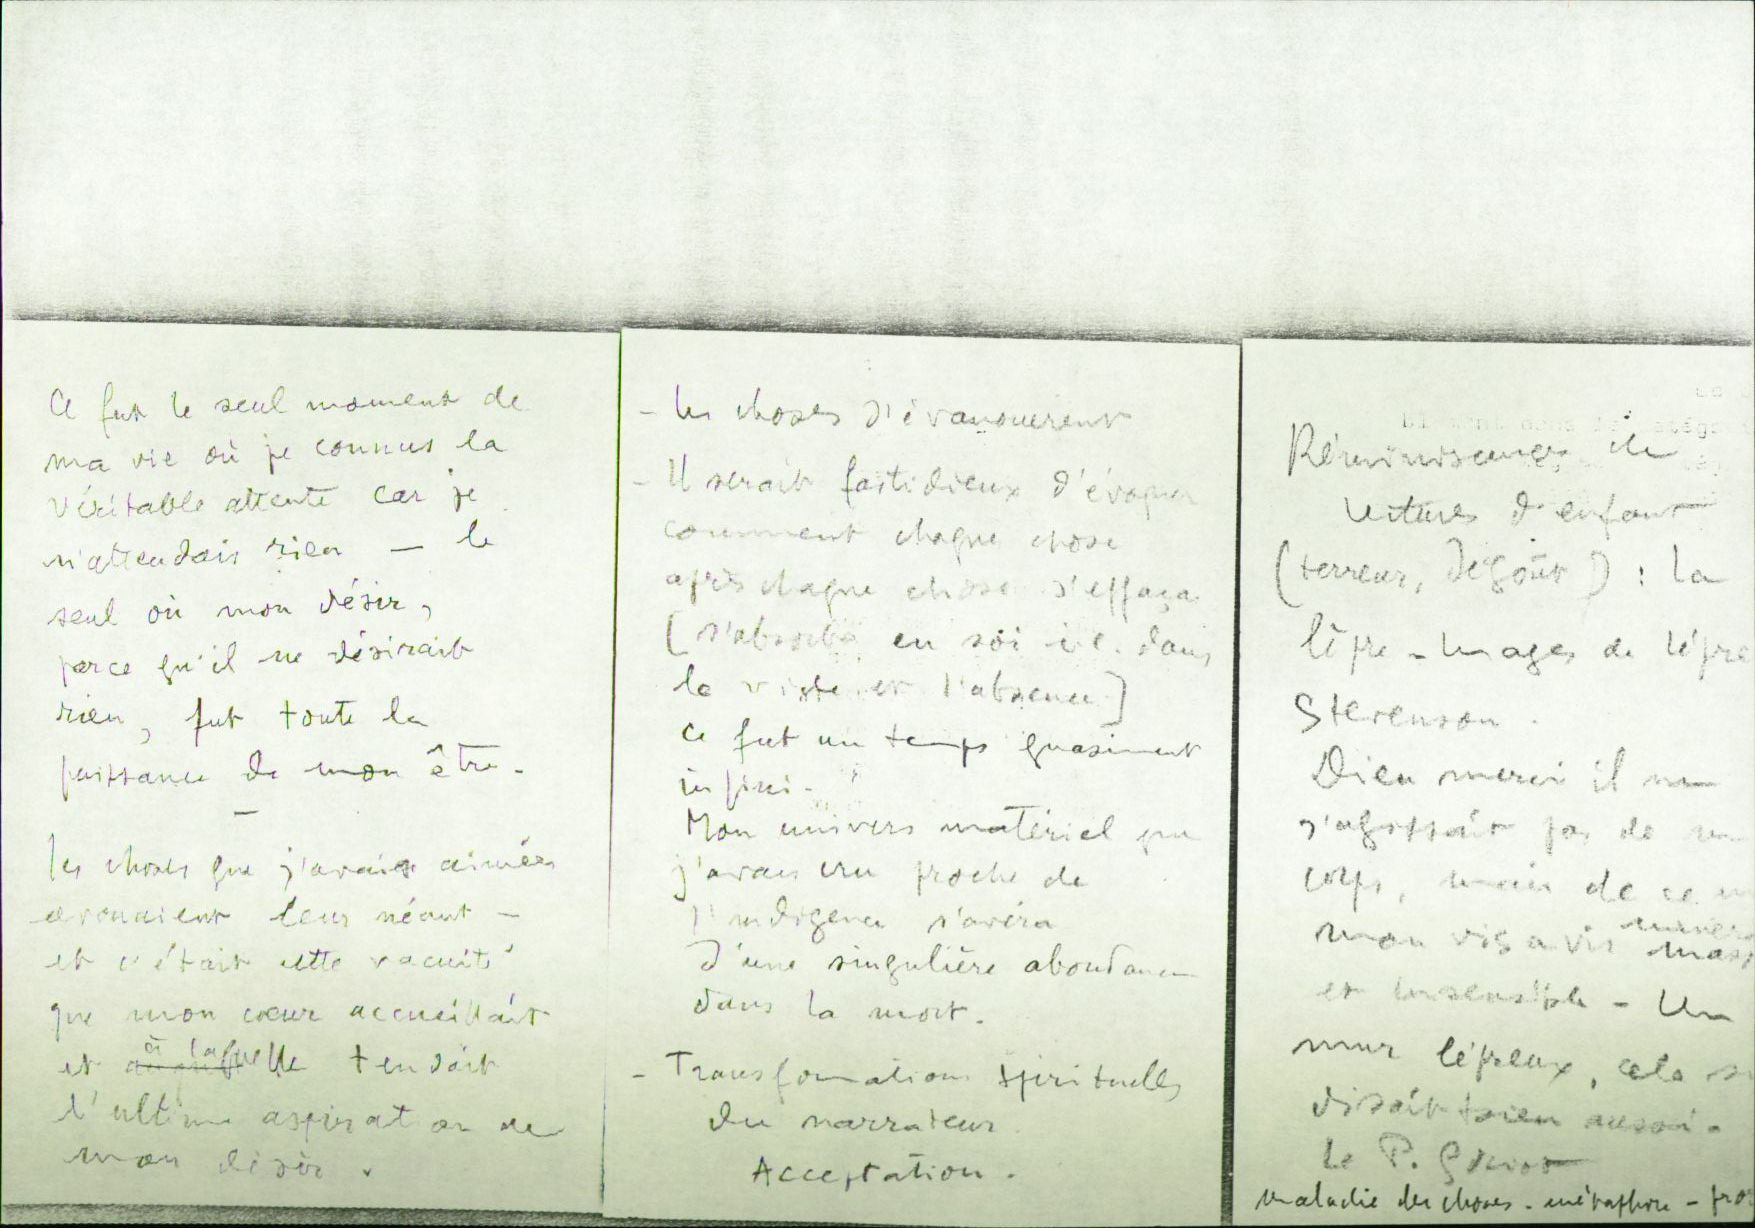 Ce fut le seul moment de
ma vie où je connus la
véritable attente car je
n'attendais rien — le
seul où mon désir,
parce qu'il ne désirait
rien, fut toute la
puissance de mon être.
—
les choses que j'avais aimées
avouaient leur néant —
et c'était cette vacuité
que mon cœur accueillait
et à laquelle tendait
l'ultime aspiration de
mon désir.
- les choses s'évanouirent
- Il serait fastidieux d'évoquer
comment chaque chose
après chaque chose s'effaça
[s'absorba en soi i.e. dans
le vide et l'absence]
Ce fut un temps quasiment
infini.
Mon univers matériel que
j'avais cru proche de
l'indigence s'avéra
d'une singulière abondance
dans la mort.
- Transformations spirituelles
du narrateur
Acceptation.
Réminiscences de
lectures d'enfant
(terreur, dégoût) : la
lèpre - Images de lèpre
Stevenson.
Dieu merci il ne
s'agissait pas de mon
corps, mais de ce
mon vis a vis
et insensible - Un
mur lépreux, cela se
disait bien aussi.
Le P.
maladie des choses - métaphore -